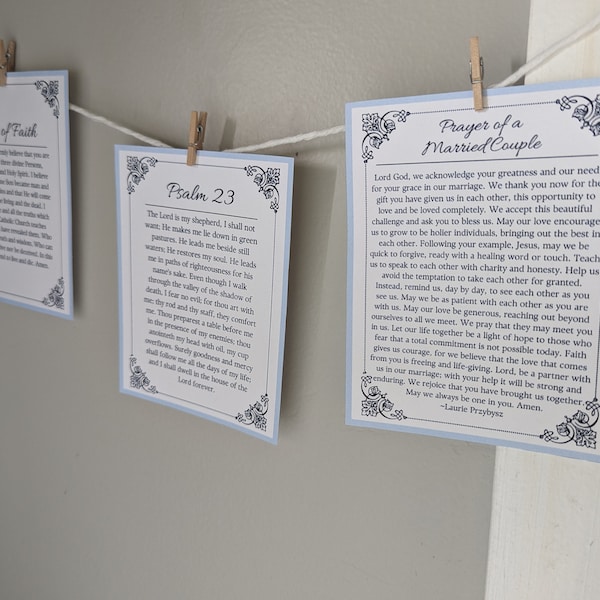 of Faith
believe that you are
three divine Persons,
and Holy Spirit. I believe
Son became man and
and that He will come
the living and the dead. I
and all the truths which
Catholic Church teaches
have revealed them, Who
truth and wisdom, Who can
nor be deceived. In this
to live and die. Amen.
Psalm 23
The Lord is my shepherd, I shall not
want; He makes me lie down in green
pastures. He leads me beside still
waters; He restores my soul. He leads
me in paths of righteousness for his
name's sake. Even though I walk
through the valley of the shadow of
death, I fear no evil; for thou art with
me; thy rod and thy staff, they comfort
me. Thou preparest a table before me
in the presence of my enemies; thou
anointeth my head with oil, my cup
overflows. Surely goodness and mercy
shall follow me all the days of my life;
and I shall dwell in the house of the
Lord forever.
Prayer of a
Married Couple
Lord God, we acknowledge your greatness and our need
for your grace in our marriage. We thank you now for the
gift you have given us in each other, this opportunity to
love and be loved completely. We accept this beautiful
challenge and ask you to bless us. May our love encourage
us to grow to be holier individuals, bringing out the best in
each other. Following your example, Jesus, may we be
quick to forgive, ready with a healing word or touch. Teach
us to speak to each other with charity and honesty. Help us
avoid the temptation to take each other for granted.
Instead, remind us, day by day, to see each other as you
see us. May we be as patient with each other as you are
with us. May our love be generous, reaching out beyond
ourselves to all we meet. We pray that they may meet you
in us. Let our life together be a light of hope to those who
fear that a total commitment is not possible today. Faith
gives us courage, for we believe that the love that comes
from you is freeing and life-giving. Lord, be a partner with
us in our marriage; with your help it will be strong and
enduring. We rejoice that you have brought us together.
May we always be one in you. Amen.
~Laurie Przybysz